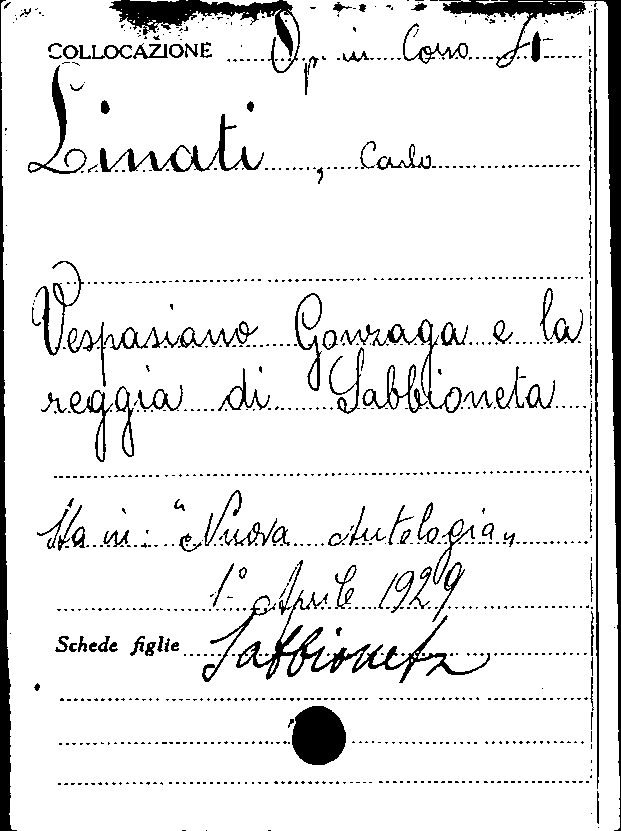 COLLOCAZIONE Op. in Corso St
Linati, Carlo
Vespasiano Gonzaga e la
reggia di Sabbioneta
Sta in: "Nuova Antologia„
1º Aprile 1929
Schede figlie Sabbioneta